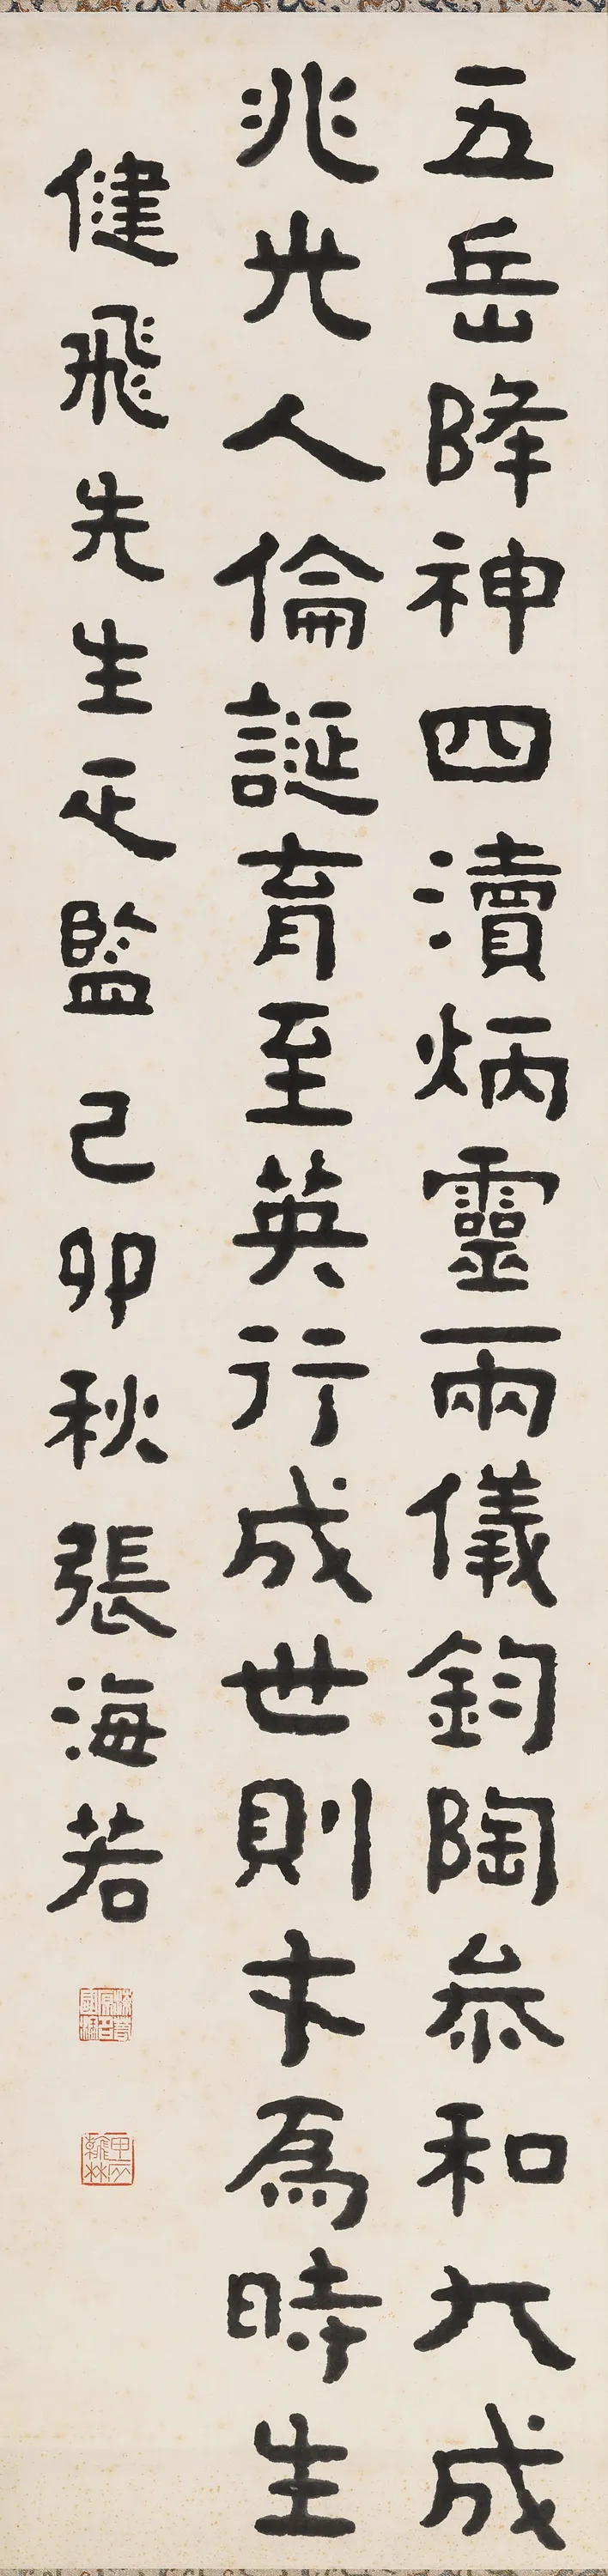 五岳降神四瀆炳靈兩儀鈞陶叅和大成
兆光人倫誕育至英行成世則才為時生
健飛先生正監 己卯秋張海若
甲辰翰林